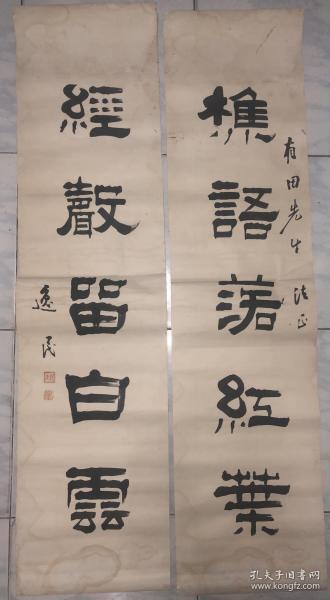 有田先生法正
樵語落紅葉
經聲留白雲
逸民
孔夫子旧书网
www.kongfz.com